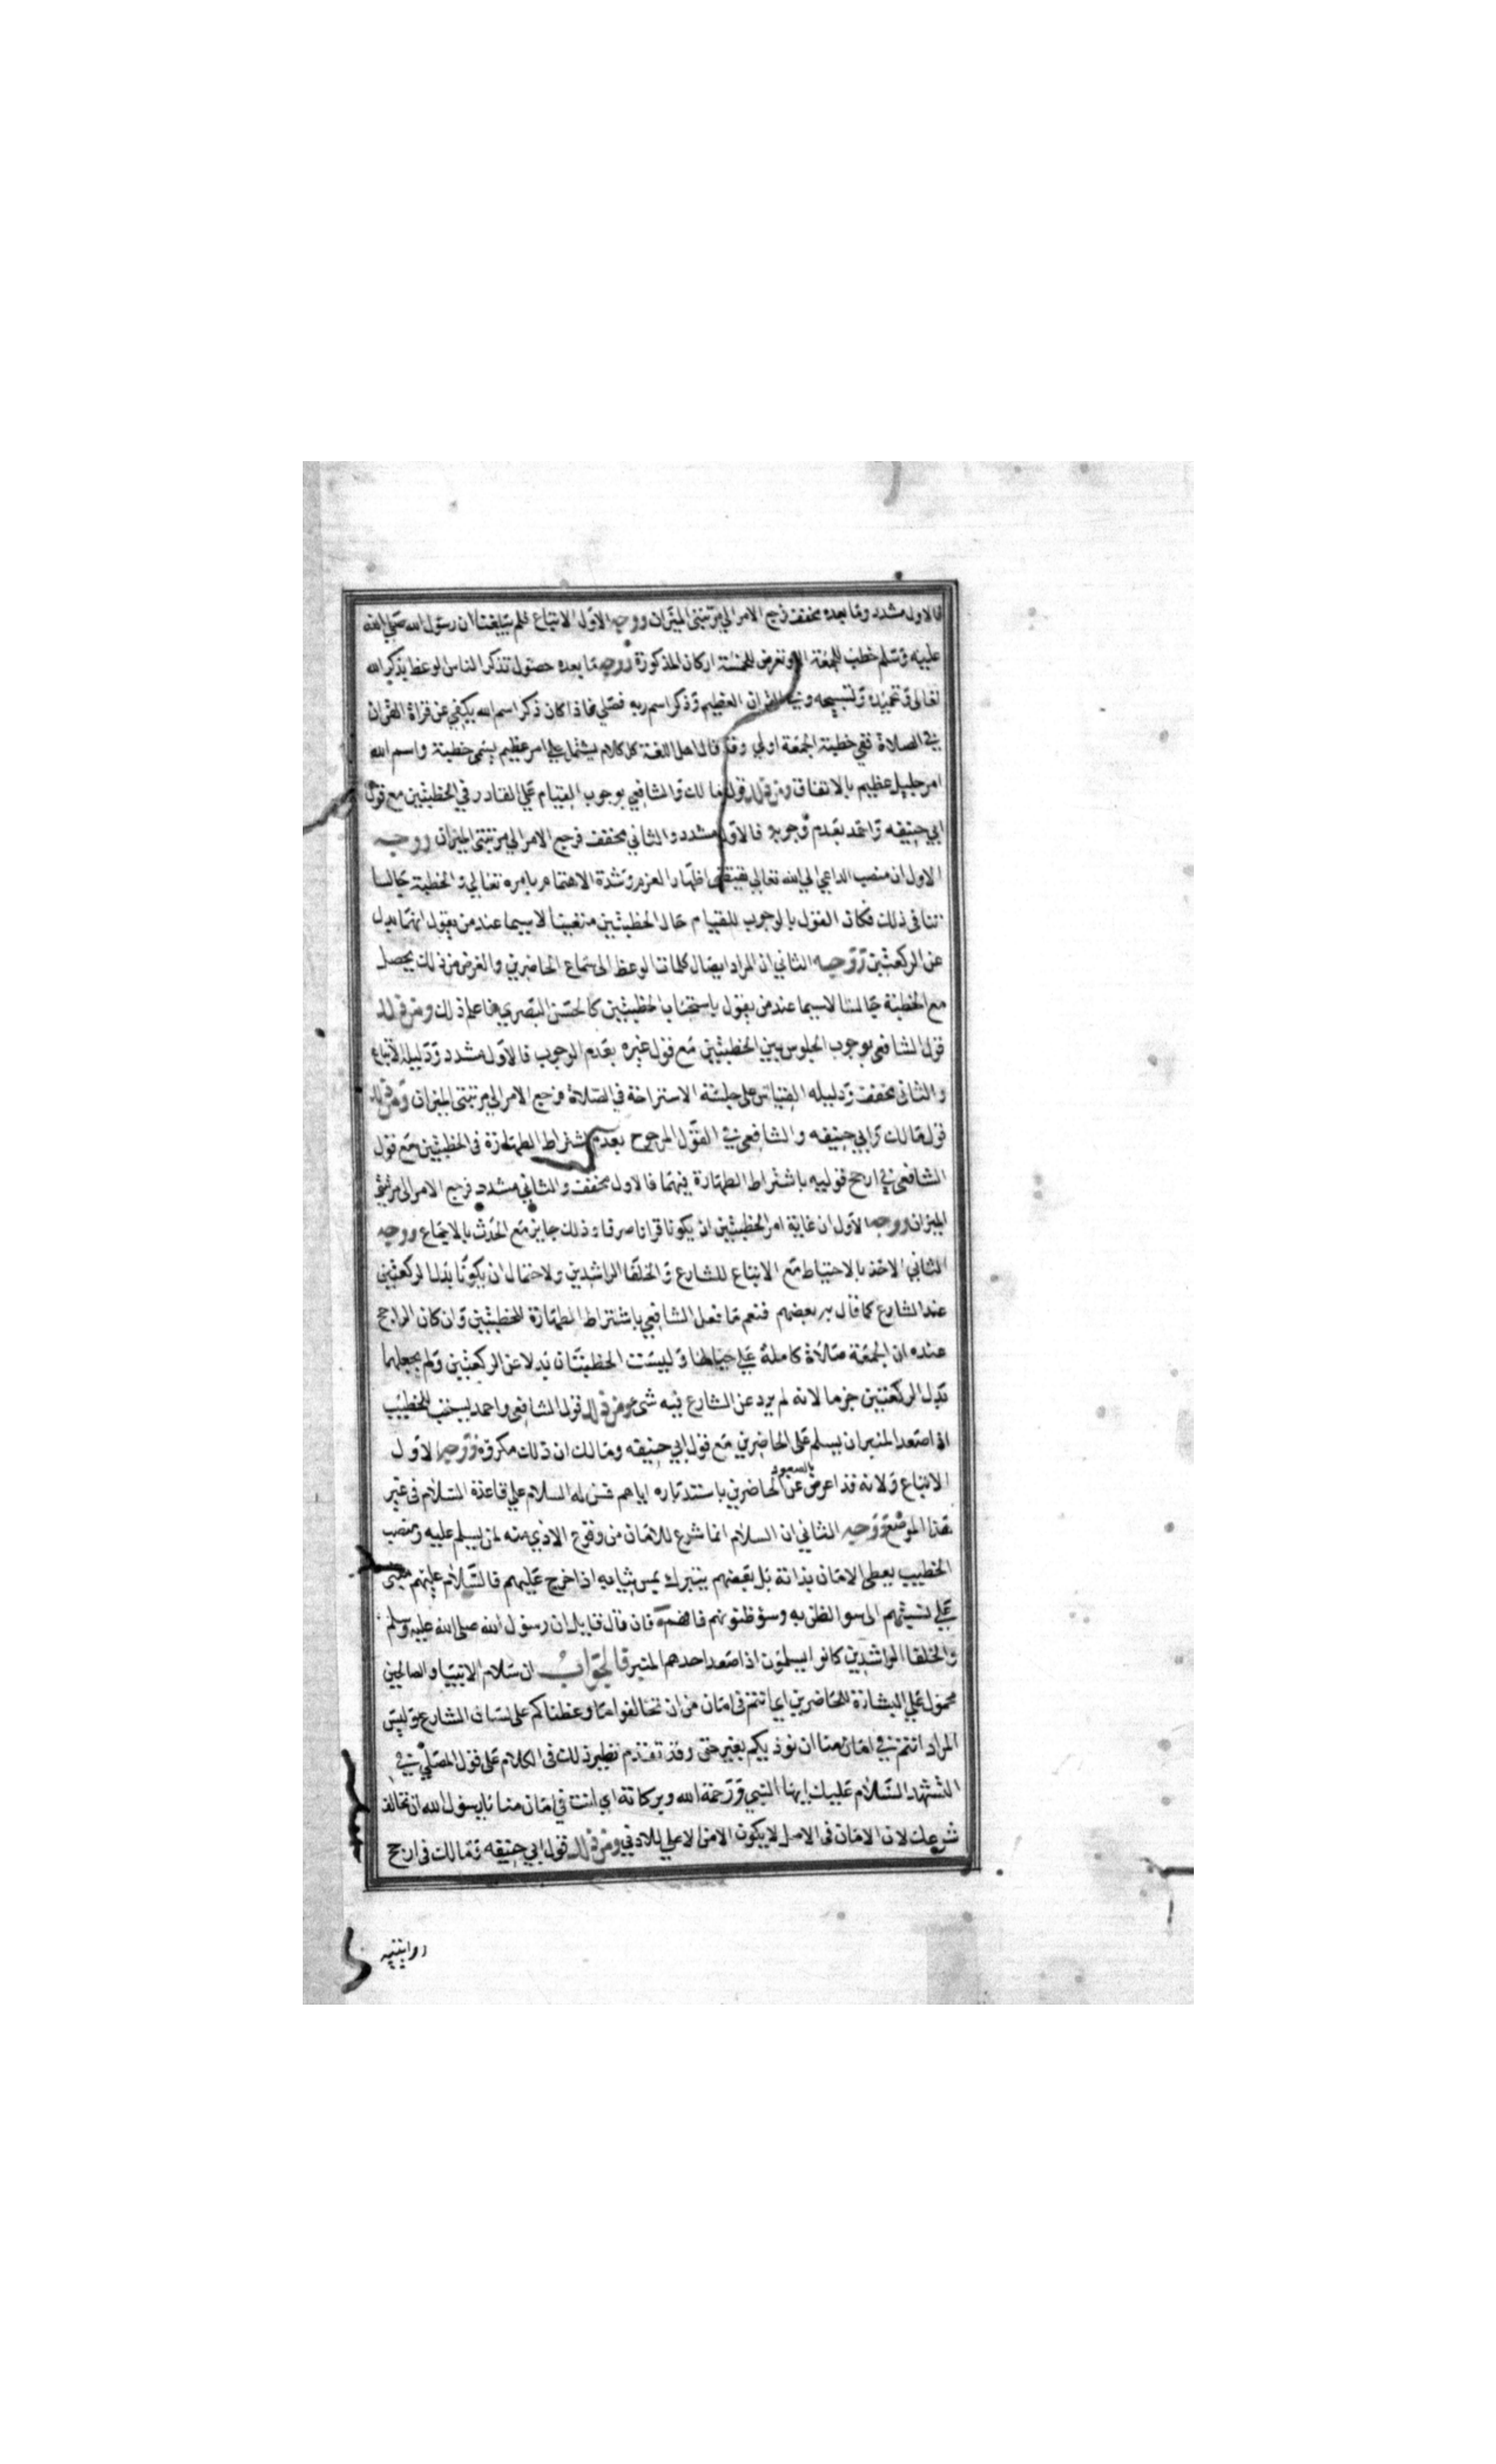 فالاول مشدد وما بعده مخفف فرجع الامر الي مرتبتي الميزان ووجه الاول الاتباع فلم يبلغنا ان رسول الله صلي الله
عليه وسلم خطب للجمعة الا وتعرض للخمسة اركان المذكورة ووجه ما بعده حصول تذكر الناس لوعظ بذكر الله
تعالى وتحميده وتسبيحه وفي القران العظيم وذكر اسم ربه فصلي فاذا كان ذكر اسم الله يكفي عن قراة القران
في الصلاة ففي خطبة الجمعة اولي وقد قال اهل اللغة كل كلام يشتمل علي امر عظيم يسمى خطبة واسم الله
امر جليل عظيم بالاتفاق ومن ذلك قول مالك والشافعي بوجوب القيام علي القادر في الخطبتين مع قول
ابي حنيفه واحمد بعدم وجوبه فالاول مشدد والثاني مخفف فرجع الامر الي مرتبتي الميزان ووجه
الاول ان منصب الداعي الي الله تعالي يقتضي اظهار العزم وشدة الاهتمام بامره تعالي والخطبة جالسا
تنافي ذلك فكان القول بالوجوب للقيام حال الخطبتين متعينا لاسيما عند من يقول انهما بدل
عن الركعتين ووجه الثاني ان المراد ايصال كلمات الوعظ الى سماع الحاضرين والغرض من ذلك يحصل
مع الخطبة جالسا لاسيما عند من يقول باستحباب الخطبتين كالحسن البصري فاعلم ذلك ومن ذلك
قول الشافعي بوجوب الجلوس بين الخطبتين مع قول غيره بعدم الوجوب فالاول مشدد ودليله الاتباع
والثاني مخفف ودليله القياس على جلسة الاستراحة في الصلاة فرجع الامر الي مرتبتي الميزان ومن ذلك
قول مالك وابي حنيفه والشافعي في القول المرجوح بعدم اشتراط الطهارة في الخطبتين مع قول
الشافعي في ارجح قوليه باشتراط الطهارة فيهما فالاول مخفف والثاني مشدد فرجع الامر الى مرتبتي
الميزان ووجه الاول ان غاية امر الخطبتين ان يكونا قرانا صرفا وذلك جايز مع الحدث بالاجماع ووجه
الثاني الاخذ بالاحتياط مع الاتباع للشارع والخلفا الراشدين ولاحتمال ان يكونا بدل الركعتين
عند الشارع كما قال به بعضهم فنعم ما فعل الشافعي باشتراط الطهارة للخطبتين وان كان الراجح
عنده ان الجمعة صلاة كاملة علي حيالها وليست الخطبتان بدلا عن الركعتين ولم يجعلهما
بدل الركعتين جزما لانه لم يرد عن الشارع فيه شي ومن ذلك قول الشافعي واحمد يستحب للخطيب
اذا صعد المنبر ان يسلم على الحاضرين مع قول ابي حنيفه ومالك ان ذلك مكروه ووجه الاول
الاتباع ولانه قد اعرض عن الحاضرين باستدباره اياهم فسن له السلام علي قاعدة السلام في غير
بالصعود
هذا الموضع ووجه الثاني ان السلام انما شرع للامان من وقوع الاذي منه لمن يسلم عليه ومنصب
الخطيب يعطي الامان بذاته بل بعضهم يتبرك بمس ثيابه اذا خرج عليهم فالسلام عليهم مبني
علي نسبتهم الى سوا الظن به وسؤ ظنونهم فافهم فان قال قايل ان رسول الله صلى الله عليه وسلم
والخلفا الراشدين كانوا يسلمون اذا صعد احدهم المنبر فالجواب ان سلام الانبيا والصالحين
محمول علي البشارة للحاضرين اي انتم في امان من ان تخالفوا ما وعظناكم على لسان الشارع وليس
المراد انتم في امان منا ان نوذيكم بغير حق وقد تقدم نظير ذلك في الكلام على قول المصلي في
التشهد السلام عليك ايها النبي ورحمة الله وبركاته اي انت في امان منا يا رسول الله ان نخالف
شرعك لان الامان في الاصل لا يكون الا من الاعلي للادني ومن ذلك قول ابي حنيفه ومالك في ارجح
روايتيه